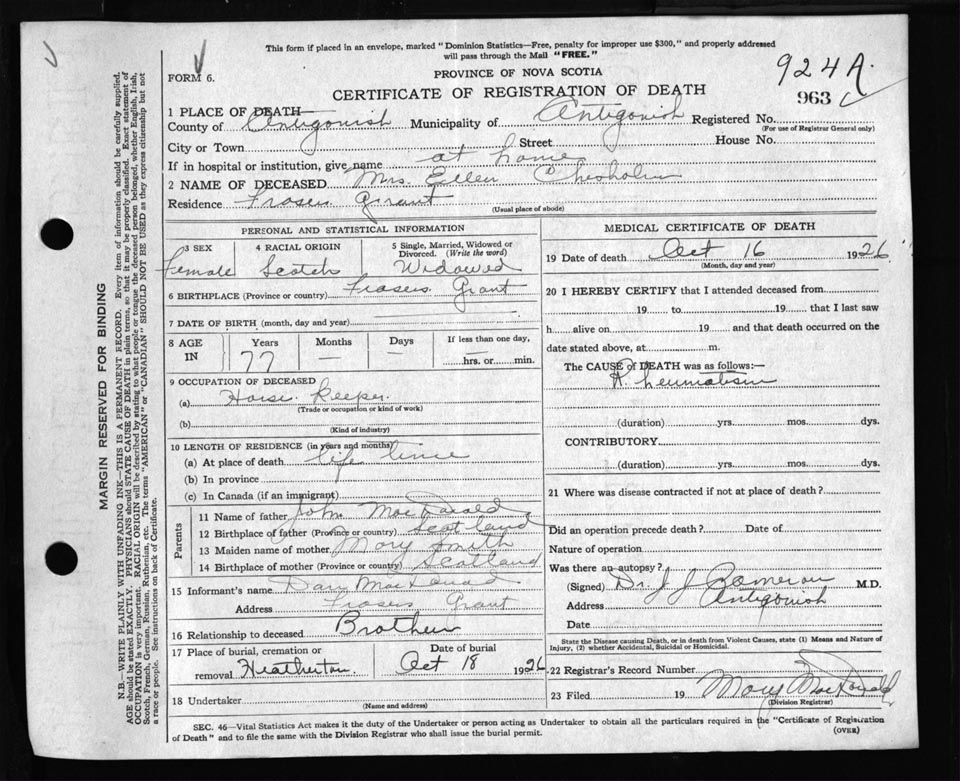 This form if placed in an envelope, marked "Dominion Statistics—Free, penalty for improper use $300," and properly addressed
will pass through the Mail "FREE."
FORM 6.
PROVINCE OF NOVA SCOTIA
924A
CERTIFICATE OF REGISTRATION OF DEATH
963
1 PLACE OF DEATH—
County of Antigonish Municipality of Antigonish Registered No.
(For use of Registrar General only)
City or Town Street House No.
If in hospital or institution, give name at home
2 NAME OF DECEASED Mrs. Ellen Chesholm
Residence Frasers Grant
(Usual place of abode)
PERSONAL AND STATISTICAL INFORMATION
3 SEX 4 RACIAL ORIGIN 5 Single, Married, Widowed or Divorced. (Write the word)
Female Scotch Widowed
6 BIRTHPLACE (Province or country) Frasers Grant
7 DATE OF BIRTH (month, day and year)
8 AGE IN Years Months Days If less than one day,
77 — — hrs. or min.
9 OCCUPATION OF DECEASED
(a) House Keeper
(Trade or occupation or kind of work)
(b)
(Kind of industry)
10 LENGTH OF RESIDENCE (in years and months)
(a) At place of death life time
(b) In province
(c) In Canada (if an immigrant)
Parents
11 Name of father John MacDonald
12 Birthplace of father (Province or country) Scotland
13 Maiden name of mother Mary Smith
14 Birthplace of mother (Province or country) Scotland
15 Informant's name Dan MacDonald
Address Frasers Grant
16 Relationship to deceased Brother
17 Place of burial, cremation or removal Heatherton Date of burial Oct 18 1926
18 Undertaker
(Name and address)
MEDICAL CERTIFICATE OF DEATH
19 Date of death Oct 16 1926
(Month, day and year)
20 I HEREBY CERTIFY that I attended deceased from
19 to 19 that I last saw
h alive on 19 and that death occurred on the
date stated above, at m.
The CAUSE of DEATH was as follows:—
Rheumatism
(duration) yrs. mos. dys.
CONTRIBUTORY
(duration) yrs. mos. dys.
21 Where was disease contracted if not at place of death?
Did an operation precede death? Date of
Nature of operation
Was there an autopsy?
(Signed) Dr. J J Cameron M.D.
Address Antigonish
Date
State the Disease causing Death, or in death from Violent Causes, state (1) Means and Nature of
Injury, (2) whether Accidental, Suicidal or Homicidal.
22 Registrar's Record Number
23 Filed 19 Mary MacDonald
(Division Registrar)
SEC. 46—Vital Statistics Act makes it the duty of the Undertaker or person acting as Undertaker to obtain all the particulars required in the "Certificate of Registration
of Death" and to file the same with the Division Registrar who shall issue the burial permit.
(OVER)
MARGIN RESERVED FOR BINDING
N.B.—WRITE PLAINLY WITH UNFADING INK—THIS IS A PERMANENT RECORD. Every item of information should be carefully supplied.
AGE should be stated EXACTLY. PHYSICIANS should STATE CAUSE OF DEATH in plain terms, so that it may be properly classified. Exact statement of
OCCUPATION is very important. RACIAL ORIGIN will be described by stating to what people or tongue the deceased person belonged, whether English, Irish,
Scotch, French, German, Russian, Ruthenian, etc. The terms "AMERICAN" or "CANADIAN" SHOULD NOT BE USED as they express citizenship but not
a race or people. See instructions on back of Certificate.